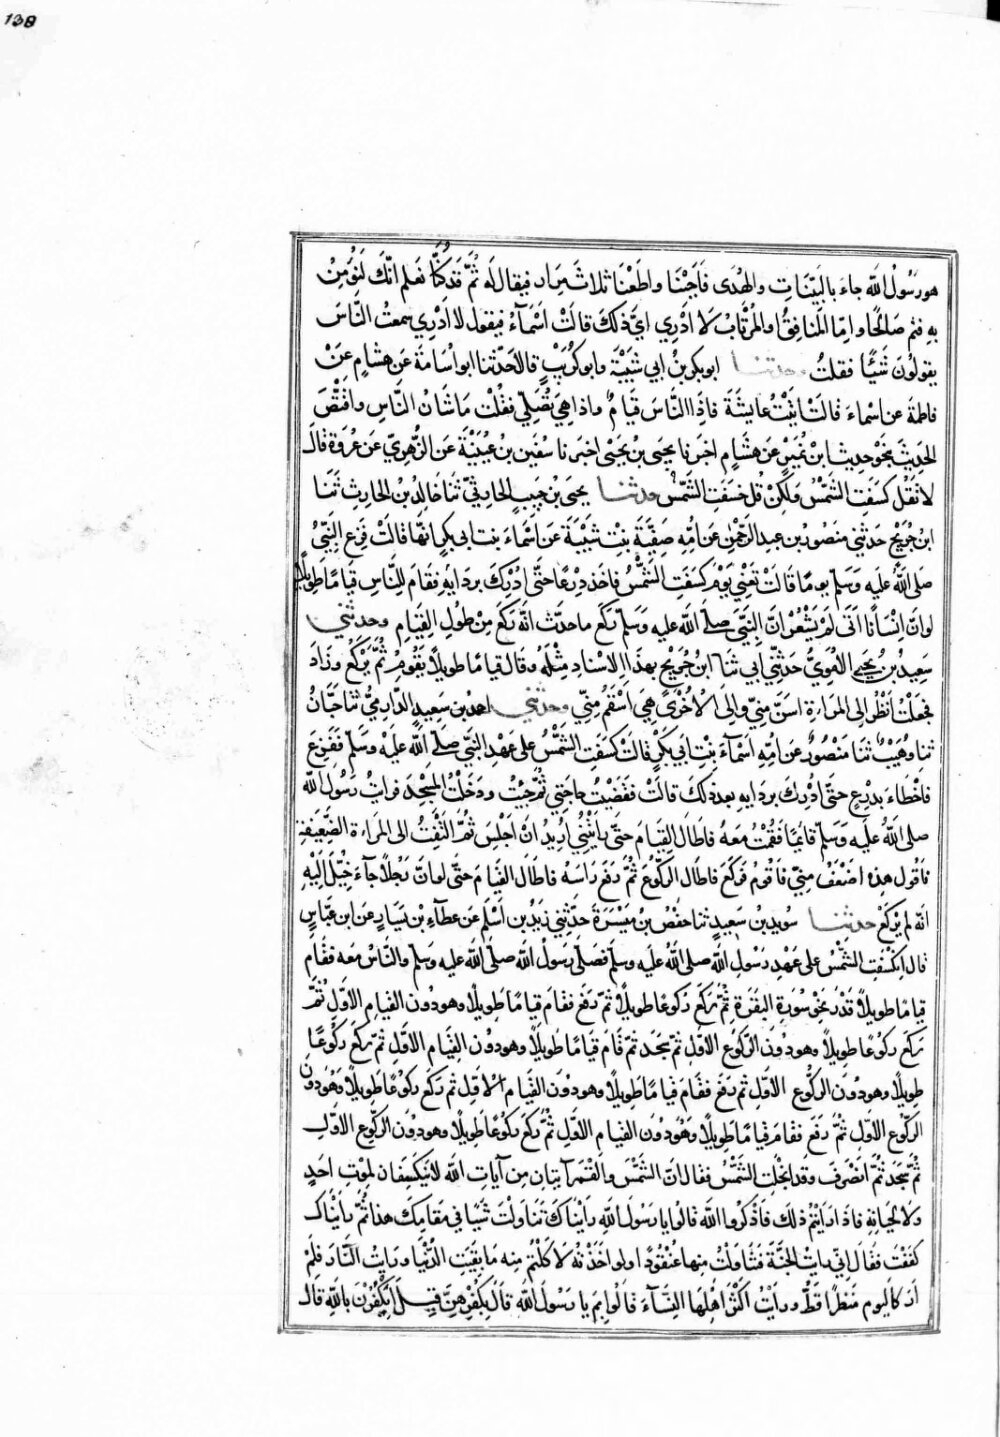 138
هو رسول الله جاء بالبينات والهدى فاجبنا واطعنا ثلاث مرار فيقال له نم قد كنا نعلم انك لتؤمن
به فنم صالحا واما المنافق او المرتاب لا ادري اي ذلك قالت اسماء فيقول لا ادري سمعت الناس
يقولون شيئا فقلت وحدثنا ابو بكر بن ابي شيبة وابو كريب قالا حدثنا ابو اسامة عن هشام عن
فاطمة عن اسماء قالت اتيت عايشة فاذا الناس قيام واذا هي تصلي فقلت ما شان الناس واقتص
الحديث بنحو حديث ابن نمير عن هشام اخبرنا يحيى بن يحيى اخبرنا سفين بن عيينة عن الزهري عن عروة قال
لا تقل كسفت الشمس ولكن قل خسفت الشمس حدثنا يحيى بن حبيب الحارثي ثنا خالد بن الحارث ثنا
ابن جريج حدثني منصور بن عبد الرحمن عن امه صفية بنت شيبة عن اسماء بنت ابي بكر انها قالت فزع النبي
صلى الله عليه وسلم يوما قالت تعني يوم كسفت الشمس فاخذ درعا حتى ادرك بردايه فقام للناس قياما طويلا
لو ان انسانا اتى لم يشعر ان النبي صلى الله عليه وسلم ركع ما حدث انه ركع من طول القيام وحدثني
سعيد بن يحيى الاموي حدثني ابي ثنا ابن جريج بهذا الاسناد مثله وقال قياما طويلا يقوم ثم يركع وزاد
فجعلت انظر الى المراءة اسن مني والى الاخرى هي اسقم مني وحدثني احمد بن سعيد الدارمي ثنا حبان
ثنا وهيب ثنا منصور عن امه اسماء بنت ابي بكر قالت كسفت الشمس على عهد النبي صلى الله عليه وسلم ففزع
فاخطاء بدرع حتى ادرك بردايه بعد ذلك قالت فقضيت حاجتي ثم جيت ودخلت المسجد فرايت رسول الله
صلى الله عليه وسلم قايما فقمت معه فاطال القيام حتى رايتني اريد ان اجلس ثم التفت الى المراءة الضعيفة
فاقول هذه اضعف مني فاقوم فركع فاطال الركوع ثم رفع راسه فاطال القيام حتى لو ان رجلا جاء خيل اليه
انه لم يركع حدثنا سويد بن سعيد ثنا حفص بن ميسرة حدثني زيد بن اسلم عن عطاء بن يسار عن ابن عباس
قال انكسفت الشمس على عهد رسول الله صلى الله عليه وسلم فصلى رسول الله صلى الله عليه وسلم والناس معه فقام
قياما طويلا قدر نحو سورة البقرة ثم ركع ركوعا طويلا ثم رفع فقام قياما طويلا وهو دون القيام الاول ثم
ركع ركوعا طويلا وهو دون الركوع الاول ثم سجد ثم قام قياما طويلا وهو دون القيام الاول ثم ركع ركوعا
طويلا وهو دون الركوع الاول ثم رفع فقام قياما طويلا وهو دون القيام الاول ثم ركع ركوعا طويلا وهو دون
الركوع الاول ثم رفع فقام قياما طويلا وهو دون القيام الاول ثم ركع ركوعا طويلا وهو دون الركوع الاول
ثم سجد ثم انصرف وقد انجلت الشمس فقال ان الشمس والقمر ايتان من آيات الله لا ينكسفان لموت احد
ولا لحياته فاذا رايتم ذلك فاذكروا الله قالوا يا رسول الله رايناك تناولت شيا في مقامك هذا ثم رايناك
كففت فقال اني رايت الجنة فتناولت منها عنقودا ولو اخذته لاكلتم منه ما بقيت الدنيا ورايت النار فلم
ار كاليوم منظرا قط ورايت اكثر اهلها النساء قالوا بم يا رسول الله قال بكفرهن قيل ايكفرن بالله قال